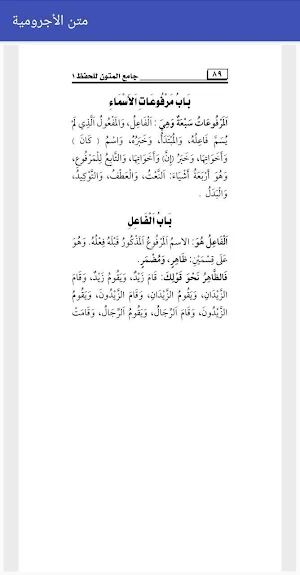 متن الأجرومية
٨٩
جامع المتون للحفظ ١
بَابُ مَرْفُوعَاتِ الأَسْمَاءِ
المَرْفُوعَاتُ سَبْعَةٌ وَهِيَ: الْفَاعِلُ، وَالمَفْعُولُ الَّذِي لَمْ
يُسَمَّ فَاعِلُهُ، وَالمُبْتَدَأُ، وَخَبَرُهُ، وَاسْمُ ( كَانَ )
وَأَخَوَاتِهَا، وَخَبَرُ (إِنَّ) وَأَخَوَاتِهَا، وَالتَّابِعُ لِلْمَرْفُوعِ،
وَهُوَ أَرْبَعَةُ أَشْيَاءَ: النَّعْتُ، وَالْعَطْفُ، وَالتَّوْكِيدُ،
وَالْبَدَلُ .
بَابُ الْفَاعِلِ
الْفَاعِلُ هُوَ: الاسمُ المَرْفُوعُ المَذْكُورُ قَبْلَهُ فِعْلُهُ. وَهُوَ
عَلَى قِسْمَيْنِ: ظَاهِرٍ، وَمُضْمَرٍ.
فَالظَّاهِرُ نَحْوَ قَوْلِكَ: قَامَ زَيْدٌ، وَيَقُومُ زَيْدٌ، وَقَامَ
الزَّيْدَانِ، وَيَقُومُ الزَّيْدَانِ، وَقَامَ الزَّيْدُونَ، وَيَقُومُ
الزَّيْدُونَ، وَقَامَ الرِّجَالُ، وَيَقُومُ الرِّجَالُ، وَقَامَتْ